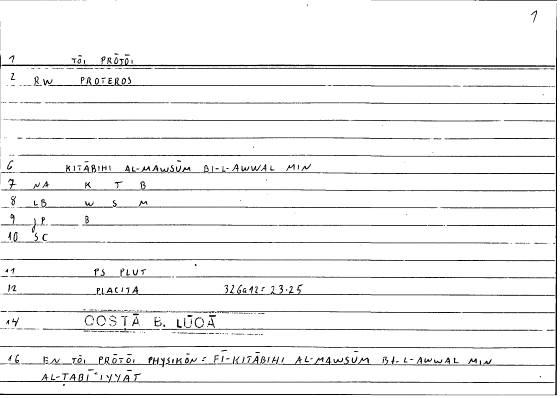 1
1 TŌI PRŌTŌI
2 RW PROTEROS
6 KITĀBIHI AL-MAWSŪM BI-L-AWWAL MIN
7 NA K T B
8 LB W S M
9 JP B
10 SC
11 PS PLUT
12 PLACITA 326a12 = 23.25
14 COSTĀ B. LŪQĀ
16 EN TŌI PRŌTŌI PHYSIKŌN = FĪ-KITĀBIHI AL-MAWSŪM BI-L-AWWAL MIN
AL-ṬABĪʿIYYĀT